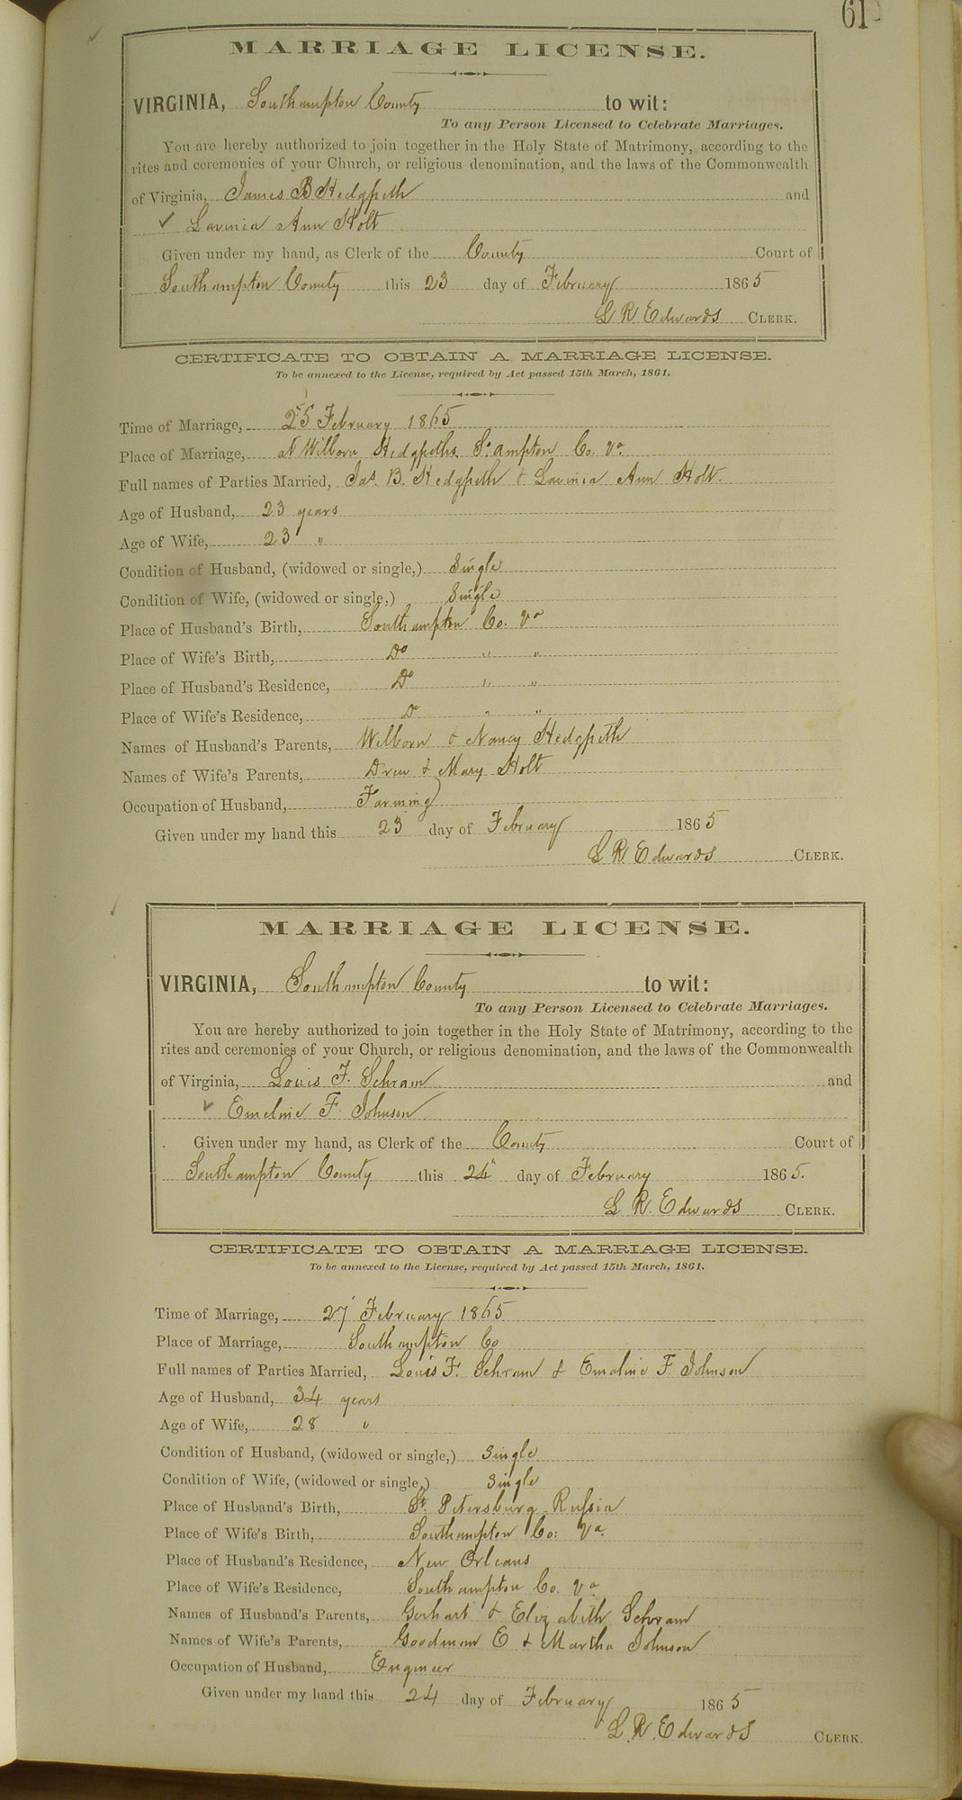 61
MARRIAGE LICENSE.
VIRGINIA, Southampton County to wit:
To any Person Licensed to Celebrate Marriages.
You are hereby authorized to join together in the Holy State of Matrimony, according to the
rites and ceremonies of your Church, or religious denomination, and the laws of the Commonwealth
of Virginia, James B Hedgpeth and
✓ Lavinia Ann Holt
Given under my hand, as Clerk of the County Court of
Southampton County this 23 day of February 1865
L R Edwards CLERK.
CERTIFICATE TO OBTAIN A MARRIAGE LICENSE.
To be annexed to the License, required by Act passed 15th March, 1861.
Time of Marriage, 25 February 1865
Place of Marriage, at Wilborn Hedgpeths So ampton Co. Va
Full names of Parties Married, Jas. B. Hedgpeth & Lavinia Ann Holt.
Age of Husband, 23 years
Age of Wife, 23 "
Condition of Husband, (widowed or single,) Single
Condition of Wife, (widowed or single,) Single
Place of Husband's Birth, Southampton Co. Va
Place of Wife's Birth, Do " "
Place of Husband's Residence, Do " "
Place of Wife's Residence, Do " "
Names of Husband's Parents, Wilborn & Nancy Hedgpeth
Names of Wife's Parents, Drew & Mary Holt
Occupation of Husband, Farming
Given under my hand this 23 day of February 1865
L R Edwards CLERK.
MARRIAGE LICENSE.
VIRGINIA, Southampton County to wit:
To any Person Licensed to Celebrate Marriages.
You are hereby authorized to join together in the Holy State of Matrimony, according to the
rites and ceremonies of your Church, or religious denomination, and the laws of the Commonwealth
of Virginia, Louis F. Schram and
✓ Emeline F. Johnson
Given under my hand, as Clerk of the County Court of
Southampton County this 24 day of February 1865.
L R. Edwards CLERK.
CERTIFICATE TO OBTAIN A MARRIAGE LICENSE.
To be annexed to the License, required by Act passed 15th March, 1861.
Time of Marriage, 27 February 1865
Place of Marriage, Southampton Co
Full names of Parties Married, Louis F. Schram & Emeline F Johnson
Age of Husband, 34 years
Age of Wife, 28 "
Condition of Husband, (widowed or single,) Single
Condition of Wife, (widowed or single,) Single
Place of Husband's Birth, St. Petersburg Russia
Place of Wife's Birth, Southampton Co: Va.
Place of Husband's Residence, New Orleans
Place of Wife's Residence, Southampton Co. Va
Names of Husband's Parents, Gerhart & Elizabeth Schram
Names of Wife's Parents, Goodman E & Martha Johnson
Occupation of Husband, Engineer
Given under my hand this 24 day of February 1865
L. R. Edwards CLERK.